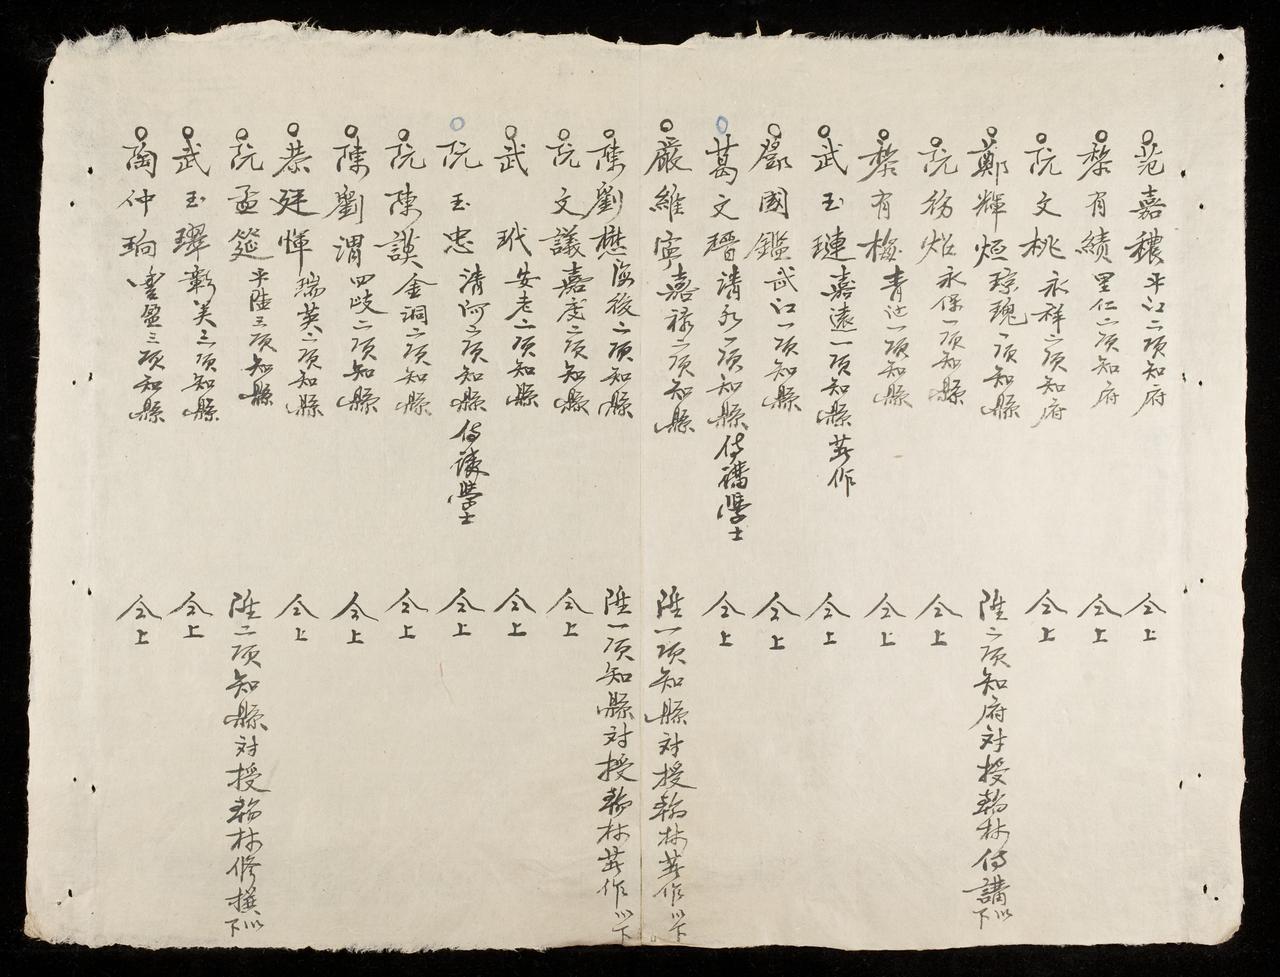 范嘉穠平江二項知府 仝上
黎有績里仁二項知府 仝上
阮文桃永祥二項知府 仝上
鄭輝烜琼瑰一項知縣 陞二項知府対授翰林侍講以下
阮務炤永保一項知縣 仝上
黎有梅青沚一項知縣 仝上
武玉璉嘉遠一項知縣著作 仝上
鄧國鑑武江一項知縣 仝上
葛文瑨清水一項知縣侍講學士 仝上
嚴維寧嘉禄二項知縣 陞一項知縣対授翰林著作以下
陳劉懋海後二項知縣 陞一項知縣対授翰林著作以下
阮文議嘉定二項知縣 仝上
武玳安老二項知縣 仝上
阮玉忠清河二項知縣侍讀學士 仝上
阮陳謨金洞二項知縣 仝上
陳劉渭四岐二項知縣 仝上
恭廷惲瑞英二項知縣 仝上
阮孟筵平陸三項知縣 陞二項知縣対授翰林修撰以下
武玉璻彰美三項知縣 仝上
陶仲珦豐盈三項知縣 仝上